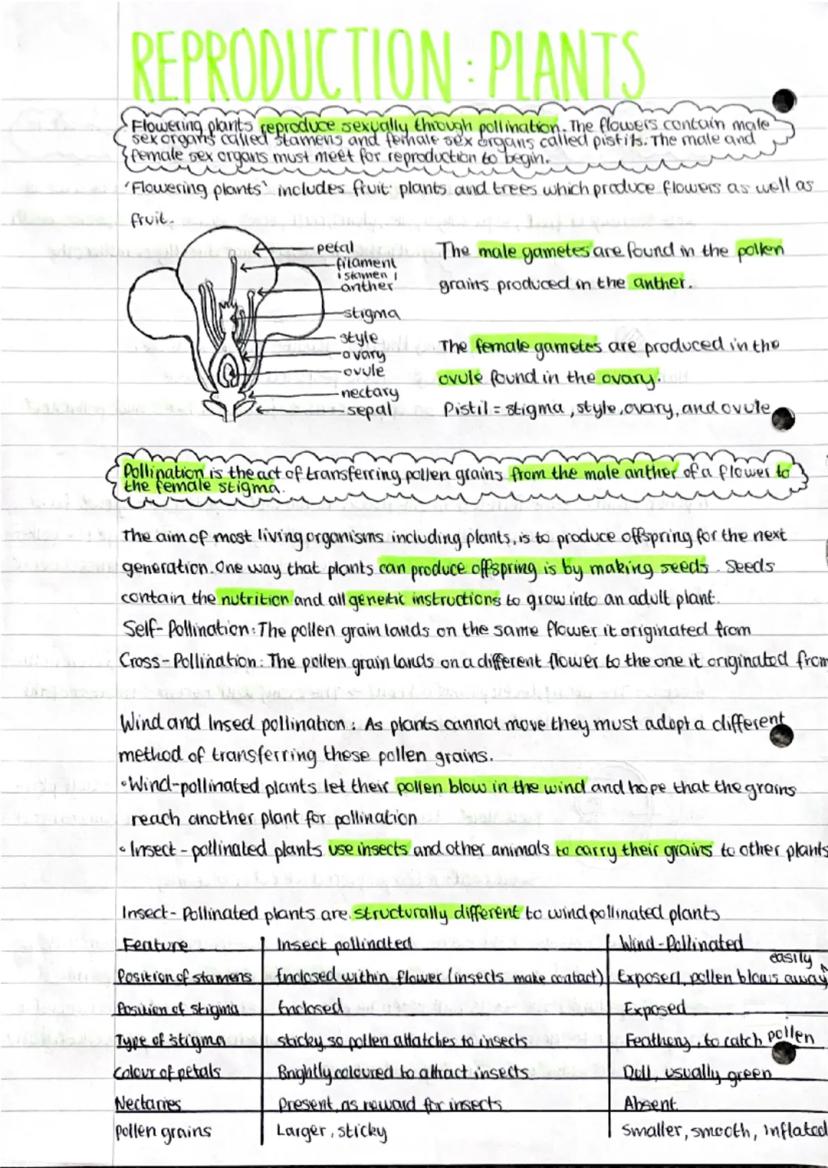 REPRODUCTION: PLANTS
Flowering plants reproduce sexually through pollination. The flowers contain male
sex organs called stamens and female sex organs called pistils. The male and
female sex organs must meet for reproduction to begin.
'Flowering plants' includes fruit plants and trees which produce flowers as well as
fruit.
petal
filament
(stamen)
anther
stigma
style
ovary
ovule
nectary
sepal
The male gametes are found in the pollen
grains produced in the anther.
The female gametes are produced in the
ovule found in the ovary.
Pistil = stigma, style, ovary, and ovule
Pollination is the act of transferring pollen grains from the male anther of a flower to
the female stigma.
The aim of most living organisms including plants, is to produce offspring for the next
generation. One way that plants can produce offspring is by making seeds. Seeds
contain the nutrition and all genetic instructions to grow into an adult plant.
Self-Pollination: The pollen grain lands on the same flower it originated from
Cross-Pollination: The pollen grain lands on a different flower to the one it originated from
Wind and Insect pollination: As plants cannot move they must adopt a different
method of transferring these pollen grains.
•Wind-pollinated plants let their pollen blow in the wind and hope that the grains
reach another plant for pollination
•Insect-pollinated plants use insects and other animals to carry their grains to other plants
Insect-Pollinated plants are structurally different to wind pollinated plants
Feature Insect pollinated Wind-Pollinated
Position of stamens Enclosed within flower (insects make contact) Exposed, pollen blows away easily
Position of stigma Enclosed Exposed
Type of stigma sticky so pollen attatches to insects Feathery, to catch pollen
Colour of petals Brightly coloured to attract insects Dull, usually green
Nectaries Present, as reward for insects Absent
pollen grains Larger, sticky Smaller, smooth, inflated